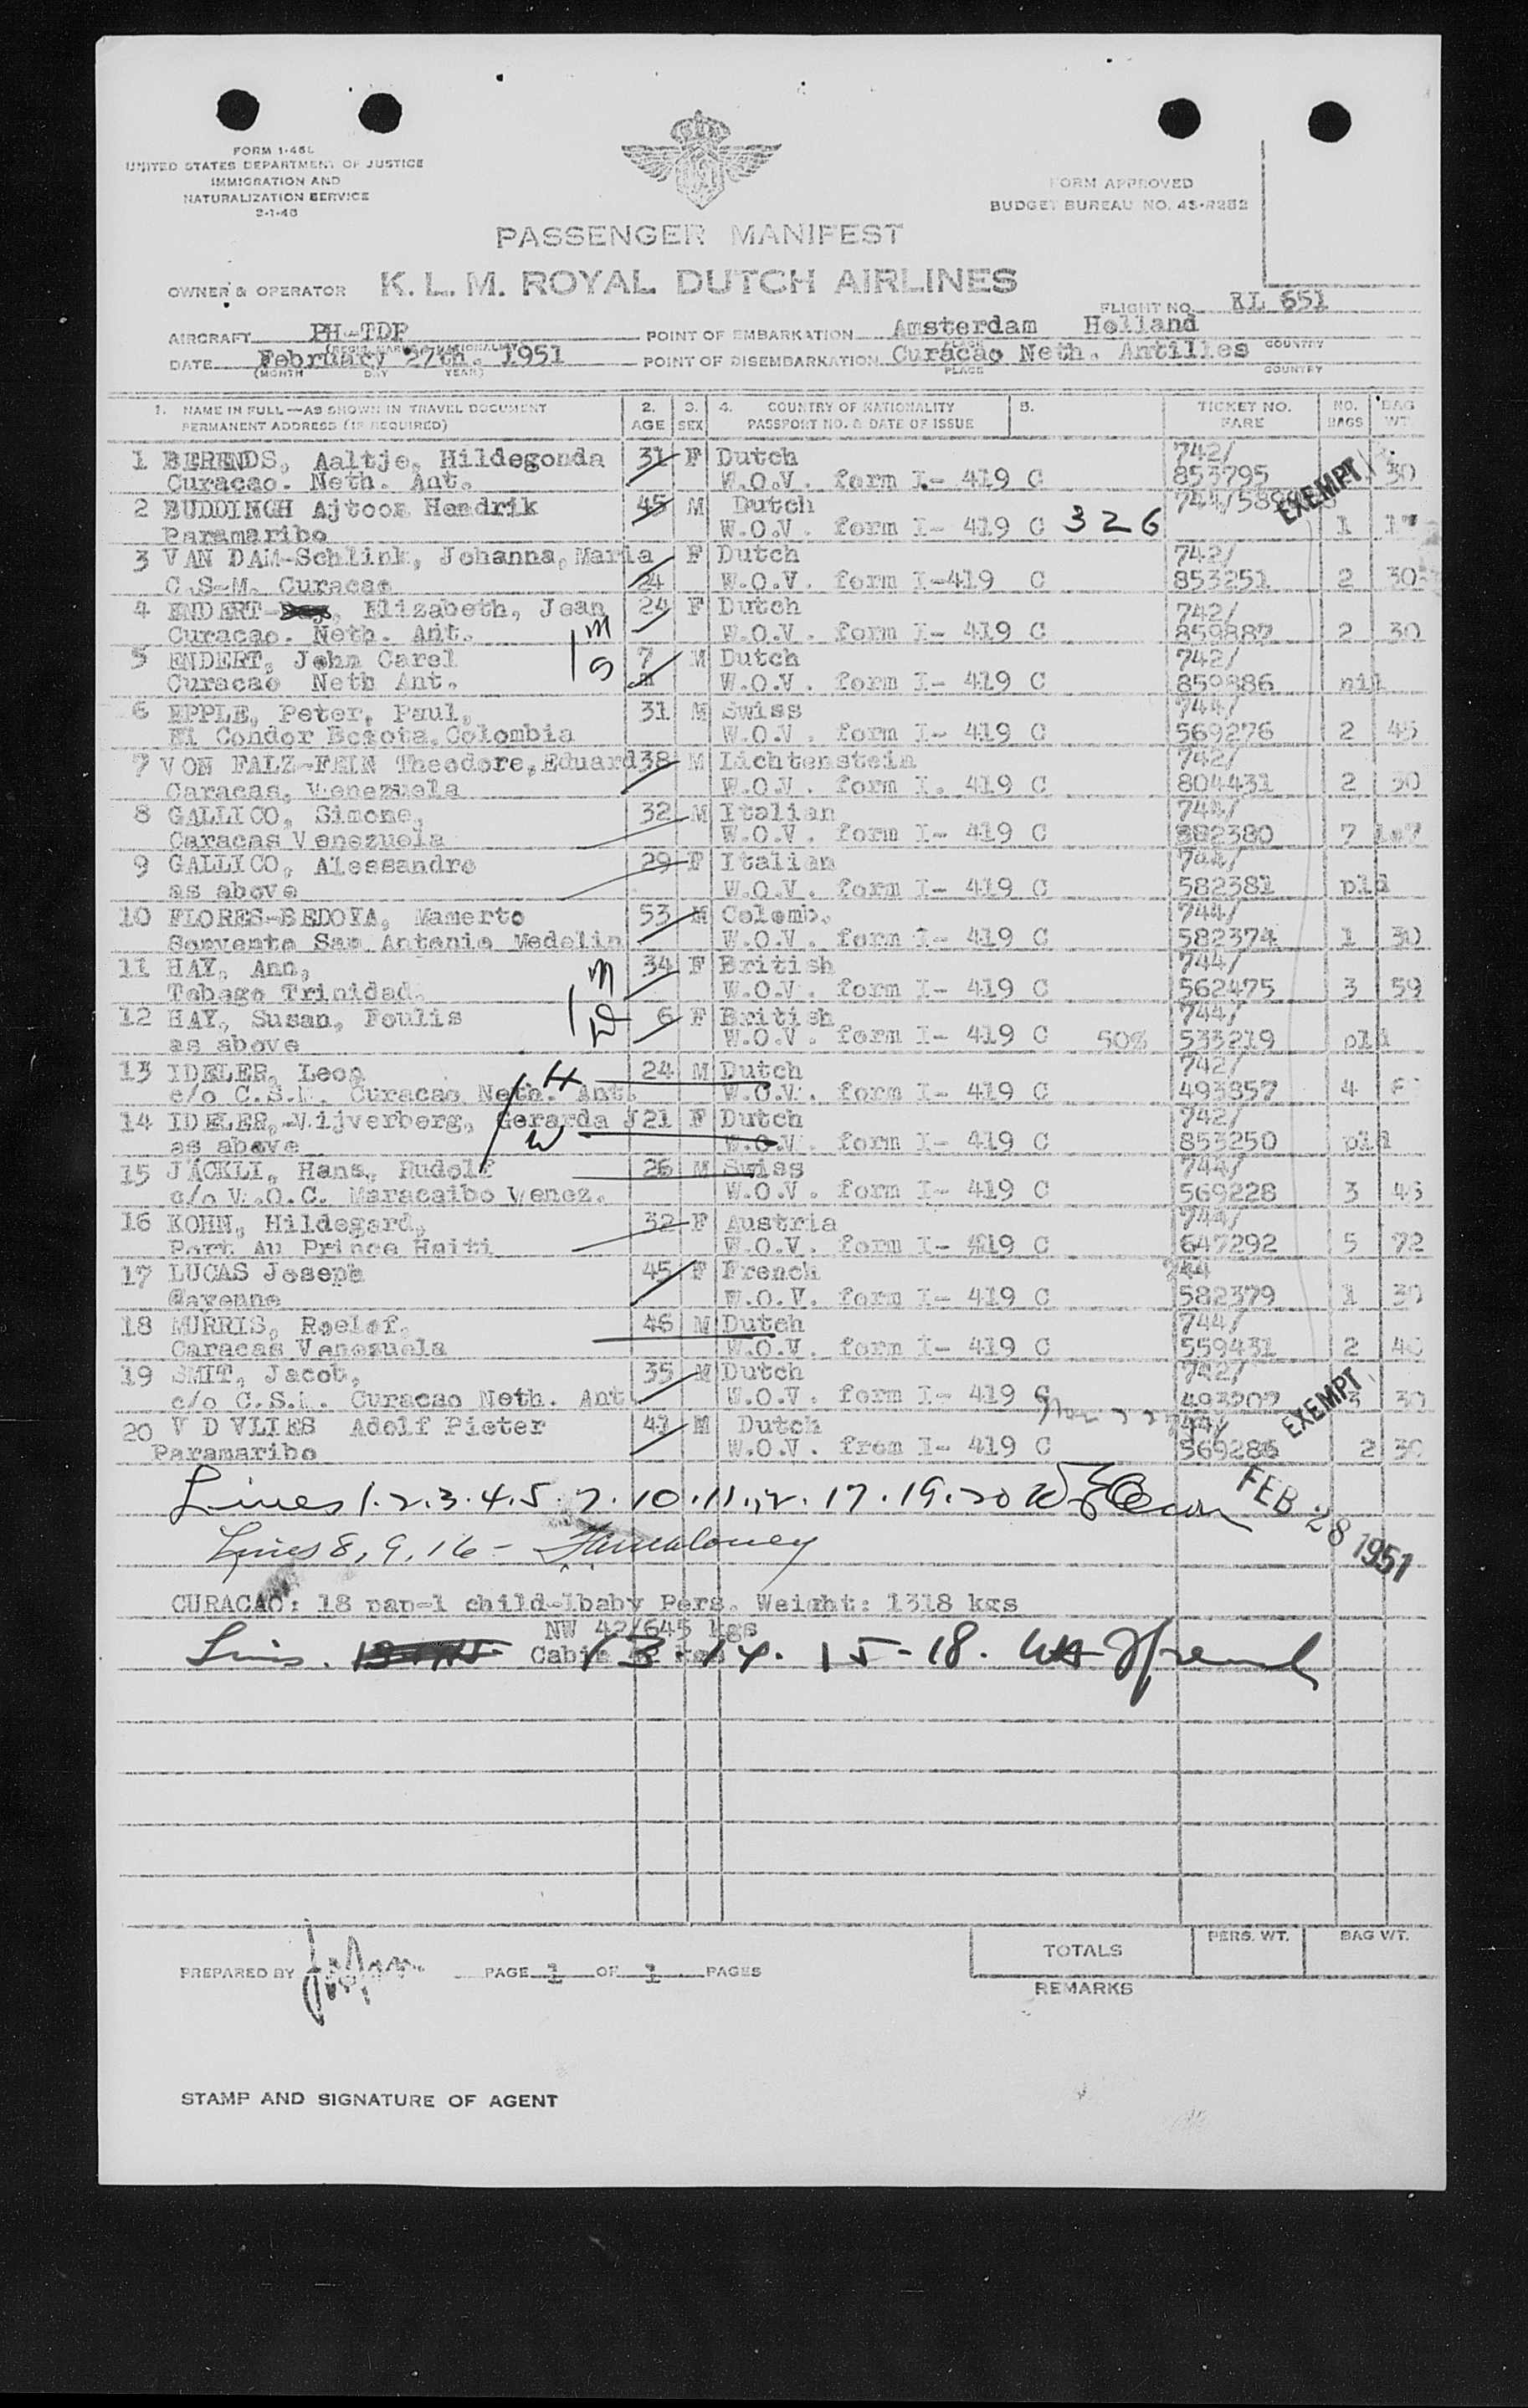 FORM I-46L
UNITED STATES DEPARTMENT OF JUSTICE
IMMIGRATION AND
NATURALIZATION SERVICE
2-1-48
FORM APPROVED
BUDGET BUREAU NO. 43-R282
PASSENGER MANIFEST
OWNER & OPERATOR K. L. M. ROYAL DUTCH AIRLINES
FLIGHT NO. KL 651
AIRCRAFT PH-TDP POINT OF EMBARKATION Amsterdam Holland
DATE February 27th. 1951 POINT OF DISEMBARKATION Curacao Neth. Antilles
(MONTH DAY YEAR) PLACE COUNTRY
1. NAME IN FULL—AS SHOWN IN TRAVEL DOCUMENT 2. 3. 4. COUNTRY OF NATIONALITY 5. TICKET NO. NO. BAG
PERMANENT ADDRESS (IF REQUIRED) AGE SEX PASSPORT NO. & DATE OF ISSUE FARE BAGS WT.
1 BERENDS, Aaltje, Hildegonda 31 F Dutch 742/
Curacao. Neth. Ant. W.O.V. form I- 419 C 853795 30
EXEMPT
2 BUDDINGH Ajtoos Hendrik 45 M Dutch
Paramaribo W.O.V. form I- 419 C 326 1
3 VAN DAM-Schlink, Johanna, Maria F Dutch 742/
C.S.M. Curacao 24 W.O.V. form I-419 C 853251 2 30
4 ENDERT- , Elizabeth, Jean 24 F Dutch 742/
Curacao. Neth. Ant. m W.O.V. form I- 419 C 859887 2 30
5 ENDERT, John Carel 7 M Dutch 742/
Curacao Neth Ant. s m W.O.V. form I- 419 C 859886 nil
6 EPPLE, Peter, Paul, 31 M Swiss 744/
El Condor Bogota. Colombia W.O.V. form I- 419 C 569276 2 45
7 VON FALZ-FEIN Theodore, Eduard 38 M Lichtenstein 742/
Caracas, Venezuela W.O.V. form I. 419 C 804431 2 30
8 GALLICO, Simone, 32 M Italian 744/
Caracas Venezuela W.O.V. form I- 419 C 582380 7
9 GALLICO, Alessandro 29 F Italian 744/
as above W.O.V. form I- 419 C 582381 pld
10 FLORES-BEDOYA, Mamerto 53 M Colomb. 744/
Convento San Antonio Medelin W.O.V. form I- 419 C 582374 1 30
11 HAY, Ann, 34 F British 744/
Tobago Trinidad. m W.O.V. form I- 419 C 562475 3 59
12 HAY, Susan, Foulis D 6 F British 744/
as above W.O.V. form I- 419 C 50% 533219 pld
13 IDELER, Leon H 24 M Dutch 742/
c/o C.S.M. Curacao Neth. Ant. W.O.V. form I- 419 C 493857 4
14 IDELER,-Vijverberg, Gerarda J 21 F Dutch 742/
as above W W.O.V. form I- 419 C 853250 pld
15 JÄCKLI, Hans, Rudolf 26 M Swiss 744/
c/o V.O.C. Maracaibo Venez. W.O.V. form I- 419 C 569228 3 45
16 KOHN, Hildegard, 32 F Austria 744/
Port Au Prince Haiti W.O.V. form I- 419 C 647292 5 72
17 LUCAS Joseph 45 F French 744
Cayenne W.O.V. form I- 419 C 582379 1 30
18 MURRIS, Roelof, 46 M Dutch 744/
Caracas Venezuela W.O.V. form I- 419 C 559431 2
19 SMIT, Jacob, 35 M Dutch 742/
c/o C.S.M. Curacao Neth. Ant W.O.V. form I- 419 C 493207 3 30
EXEMPT
20 V D VLIES Adolf Pieter 41 M Dutch 744/
Paramaribo W.O.V. from I- 419 C 569286 2 30
Lines 1.2.3.4.5.7.10.11.12.17.19.20
FEB 28 1951
Lines 8, 9, 16 -
CURACAO: 18 pap-1 child-1baby Pers. Weight: 1318 kgs
NW 42/645 kgs
Lines. 13.14.15-18.
TOTALS PERS. WT. BAG WT.
PREPARED BY PAGE 1 OF 1 PAGES
REMARKS
STAMP AND SIGNATURE OF AGENT